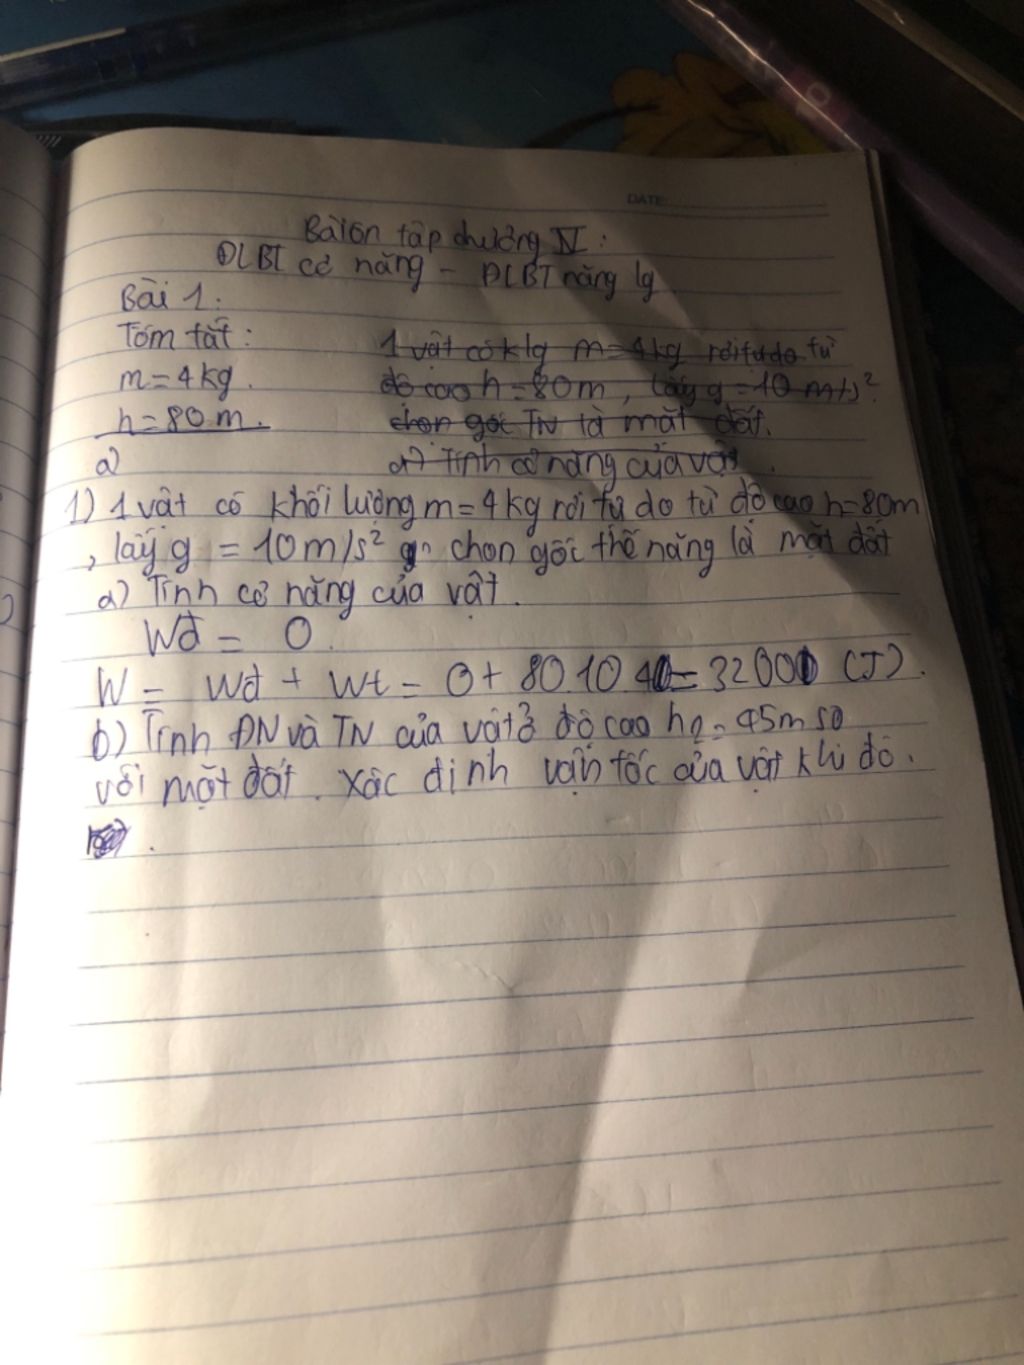 DATE
Bài ôn tập chương IV:
ĐLBT cơ năng - ĐLBT năng lg
Bài 1:
Tóm tắt:
m = 4kg.
h = 80m.
a)
1 vật có klg m = 4kg rơi tự do từ
độ cao h = 80m, lấy g = 10 m/s².
chọn gốc TN là mặt đất.
a) Tính cơ năng của vật.
1) 1 vật có khối lượng m = 4kg rơi tự do từ độ cao h = 80m
, lấy g = 10m/s² chọn gốc thế năng là mặt đất
a) Tính cơ năng của vật.
Wđ = 0.
W = Wđ + Wt = 0 + 80.10.4 = 3200 (J).
b) Tính ĐN và TN của vật ở độ cao h2 = 45m so
với mặt đất. xác định vận tốc của vật khi đó.